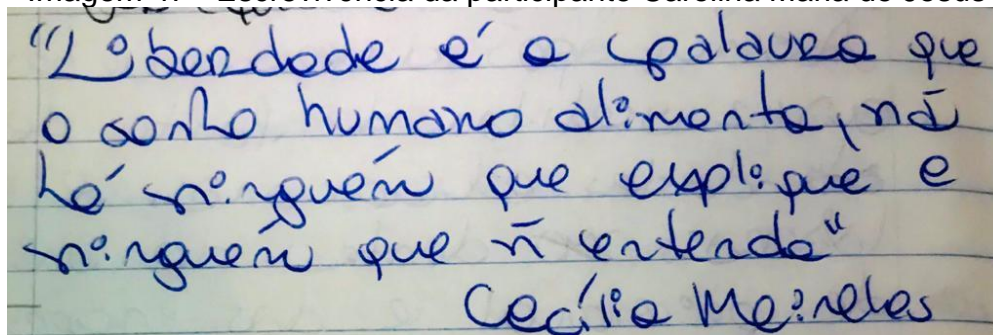 "Liberdade é a palavra que
o sonho humano alimenta, nã
há ninguém que explique e
ninguém que ñ entenda"
Cecília Meireles